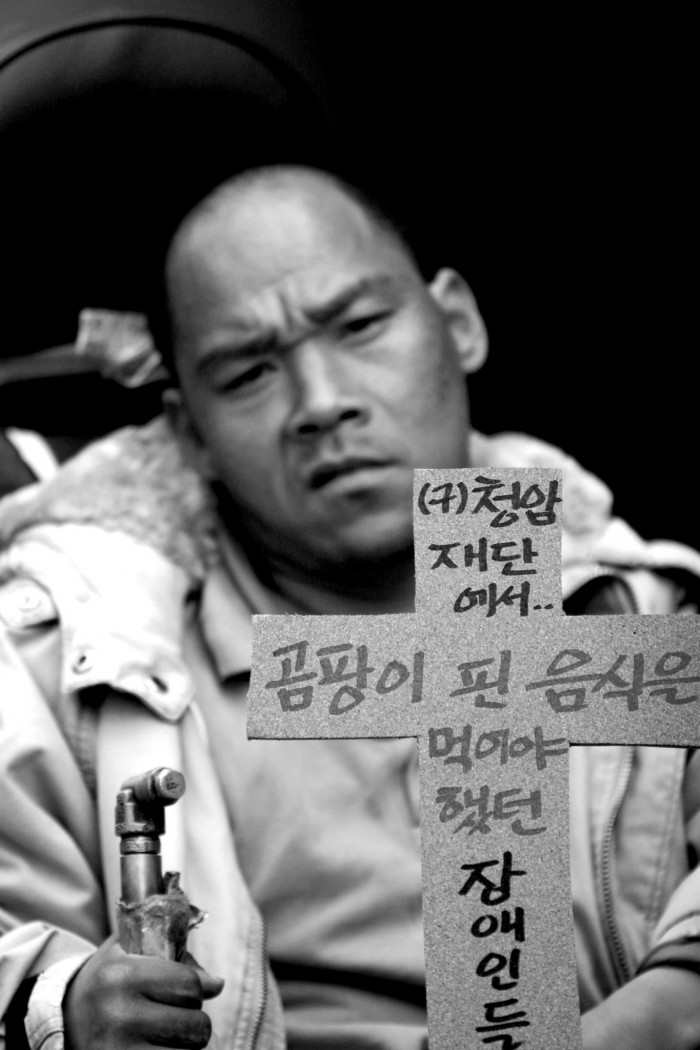 (구)청암
재단
에서..
곰팡이 핀 음식을
먹어야
했던
장
애
인
들